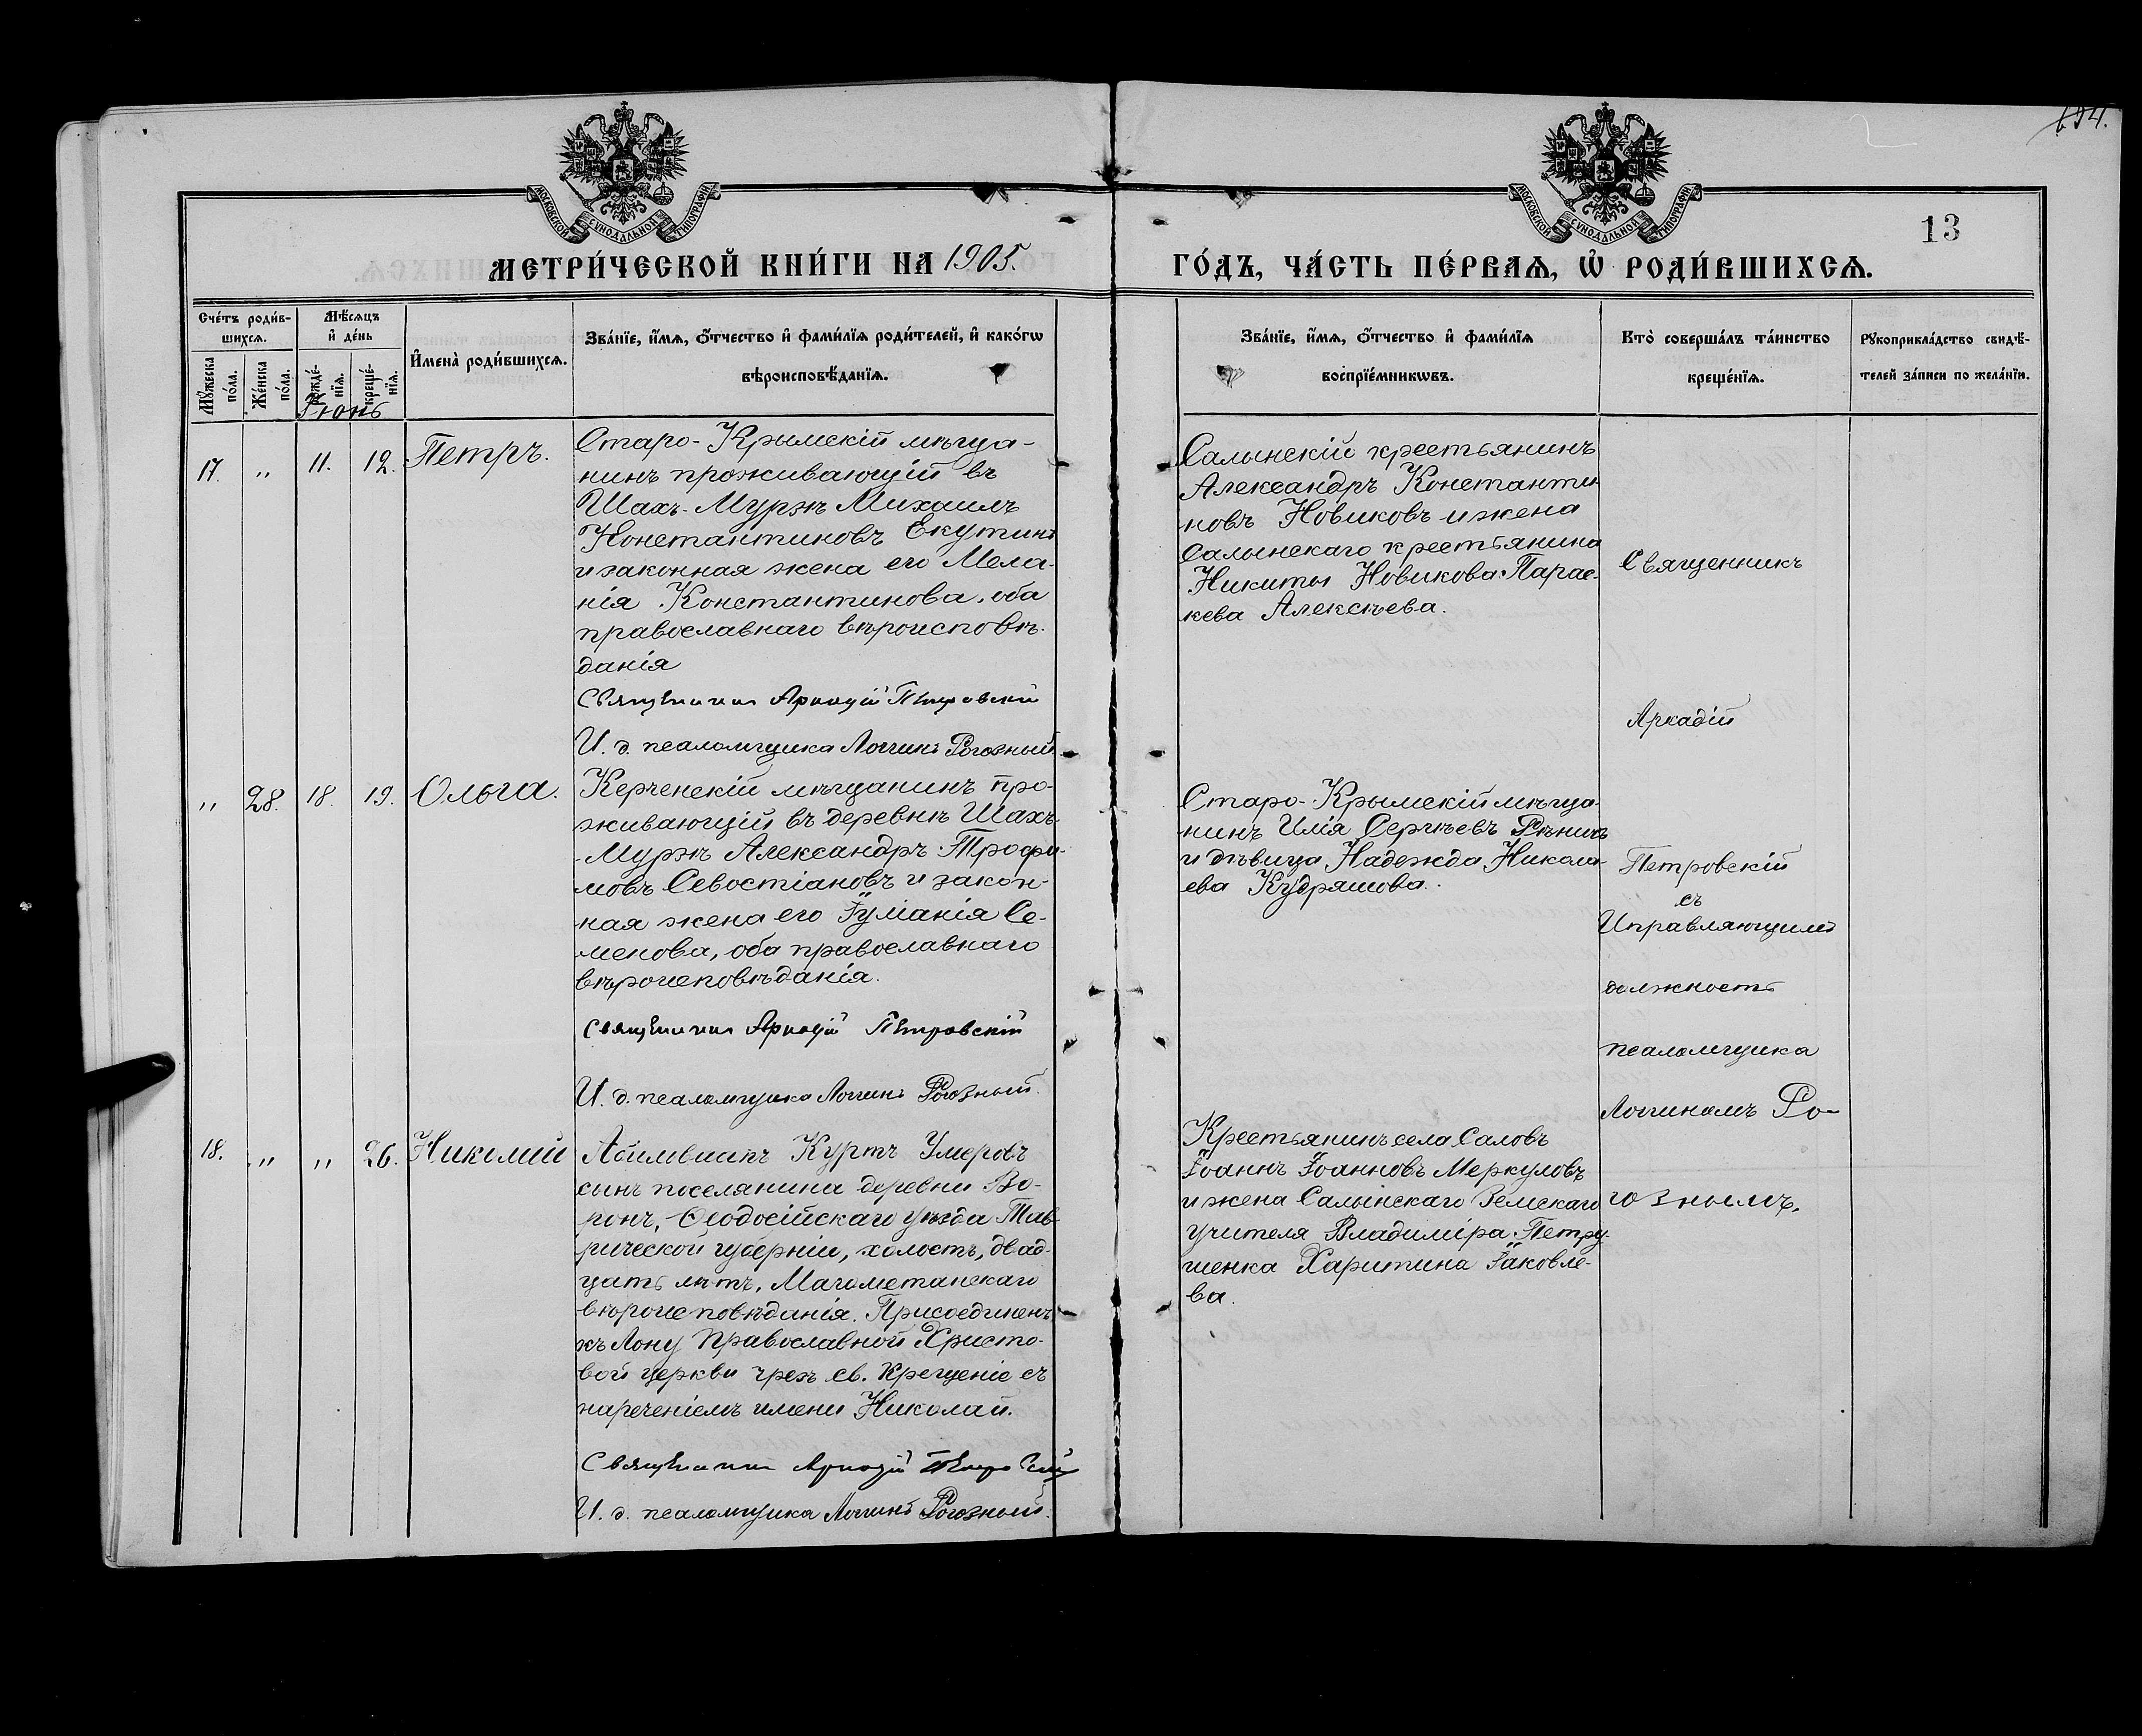 694.
13
МОСКОВСКОЙ СѴНОДАЛЬНОЙ ТИПОГРАФІИ
МОСКОВСКОЙ СѴНОДАЛЬНОЙ ТИПОГРАФІИ
МЕТРИ́ЧЕСКОЙ КНИ́ГИ НА 1905.
ГО́ДЪ, ЧА́СТЬ ПЕ́РВАѦ, Ѡ҆ РОДИ́ВШИХСѦ.
Сче́тъ роди́в-
шихсѧ.
Мꙋ́жеска по́ла.
Же́нска по́ла.
Мѣ́сѧцъ
и҆ де́нь
рожде́-нїѧ.
креще́-нїѧ.
И҆мена̀ роди́вшихсѧ.
Зва́нїе, и҆́мѧ, ѻ҆́тчество и҆ фами́лїѧ роди́телей, и҆ како́гѡ
вѣроисповѣ́данїѧ.
Зва́нїе, и҆́мѧ, ѻ҆́тчество и҆ фами́лїѧ
воспрїе́мникѡвъ.
Кто̀ соверша́лъ та́инство
креще́нїѧ.
Рꙋкоприкла́дство свидѣ́-
телей за́писи по жела́нїю.
Іюнь
17. " 11. 12. Петръ.
Старо-Крымскій мѣща-
нинъ проживающій въ
Шахъ-Мурзѣ Михаилъ
Константиновъ Екутинъ
и законная жена его Мела-
нія Константинова, оба
православнаго вѣроисповѣ-
данія
Священникъ Аркадій Петровскій
И. д. псаломщика Логгинъ Рогозный
Салынскій крестьянинъ
Александръ Константи
новъ Новиковъ и жена
Салынскаго крестьянина
Никиты Новикова Парас-
кева Алексѣева.
" 28. 18. 19. Ольга.
Керченскій мѣщанинъ про-
живающій въ деревнѣ Шахъ-
-Мурзѣ Александръ Трофи-
мовъ Севостіановъ и закон-
ная жена его Іуліанія Се-
менова, оба православнаго
вѣроисповѣданія.
Священникъ Аркадій Петровскій
И. д. псаломщика Логгинъ Рогозный.
Старо-Крымскій мѣща-
нинъ Илія Сергѣевъ
и дѣвица Надежда Никола-
ева Кудряшова.
18. " " 26. Николай
Курт Умеровъ
сынъ поселянина деревни Во-
ронъ, Ѳеодосійскаго уѣзда Тав-
рической губерніи, холостъ, двад-
цать лѣтъ, Магометанскаго
вѣроисповѣданія. Присоединенъ
къ Лону Православной Христо-
вой церкви чрезъ св. Крещеніе съ
нареченіемъ имени Николай.
Священникъ Аркадій Петровскій
И. д. псаломщика Логгинъ Рогозный.
Крестьянинъ села Саловъ
Іоаннъ Іоанновъ Меркуловъ
и жена Салынскаго Земскаго
учителя Владиміра Петру-
шенка Харитина Іаковле-
ва.
Священникъ
Аркадій
Петровскій
съ
Управляющимъ
должность
псаломщика
Логгиномъ Ро-
гознымъ.